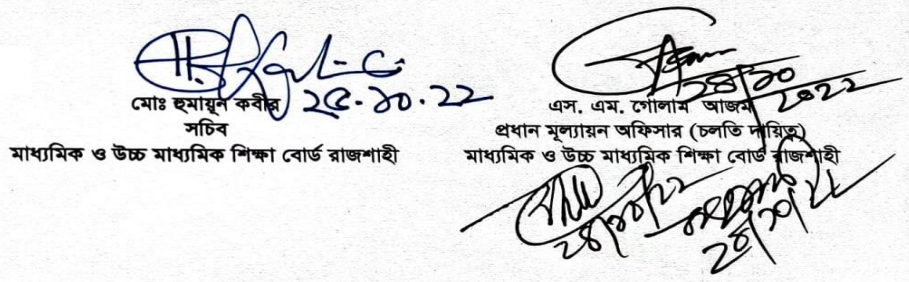 ২৫.১০.২২
মোঃ হুমায়ূন কবীর
সচিব
মাধ্যমিক ও উচ্চ মাধ্যমিক শিক্ষা বোর্ড রাজশাহী
২৪/১০
২০২২
এস. এম. গোলাম আজম
প্রধান মূল্যায়ন অফিসার (চলতি দায়িত্ব)
মাধ্যমিক ও উচ্চ মাধ্যমিক শিক্ষা বোর্ড রাজশাহী
২৪/১০/২২
২৪/১০/২২